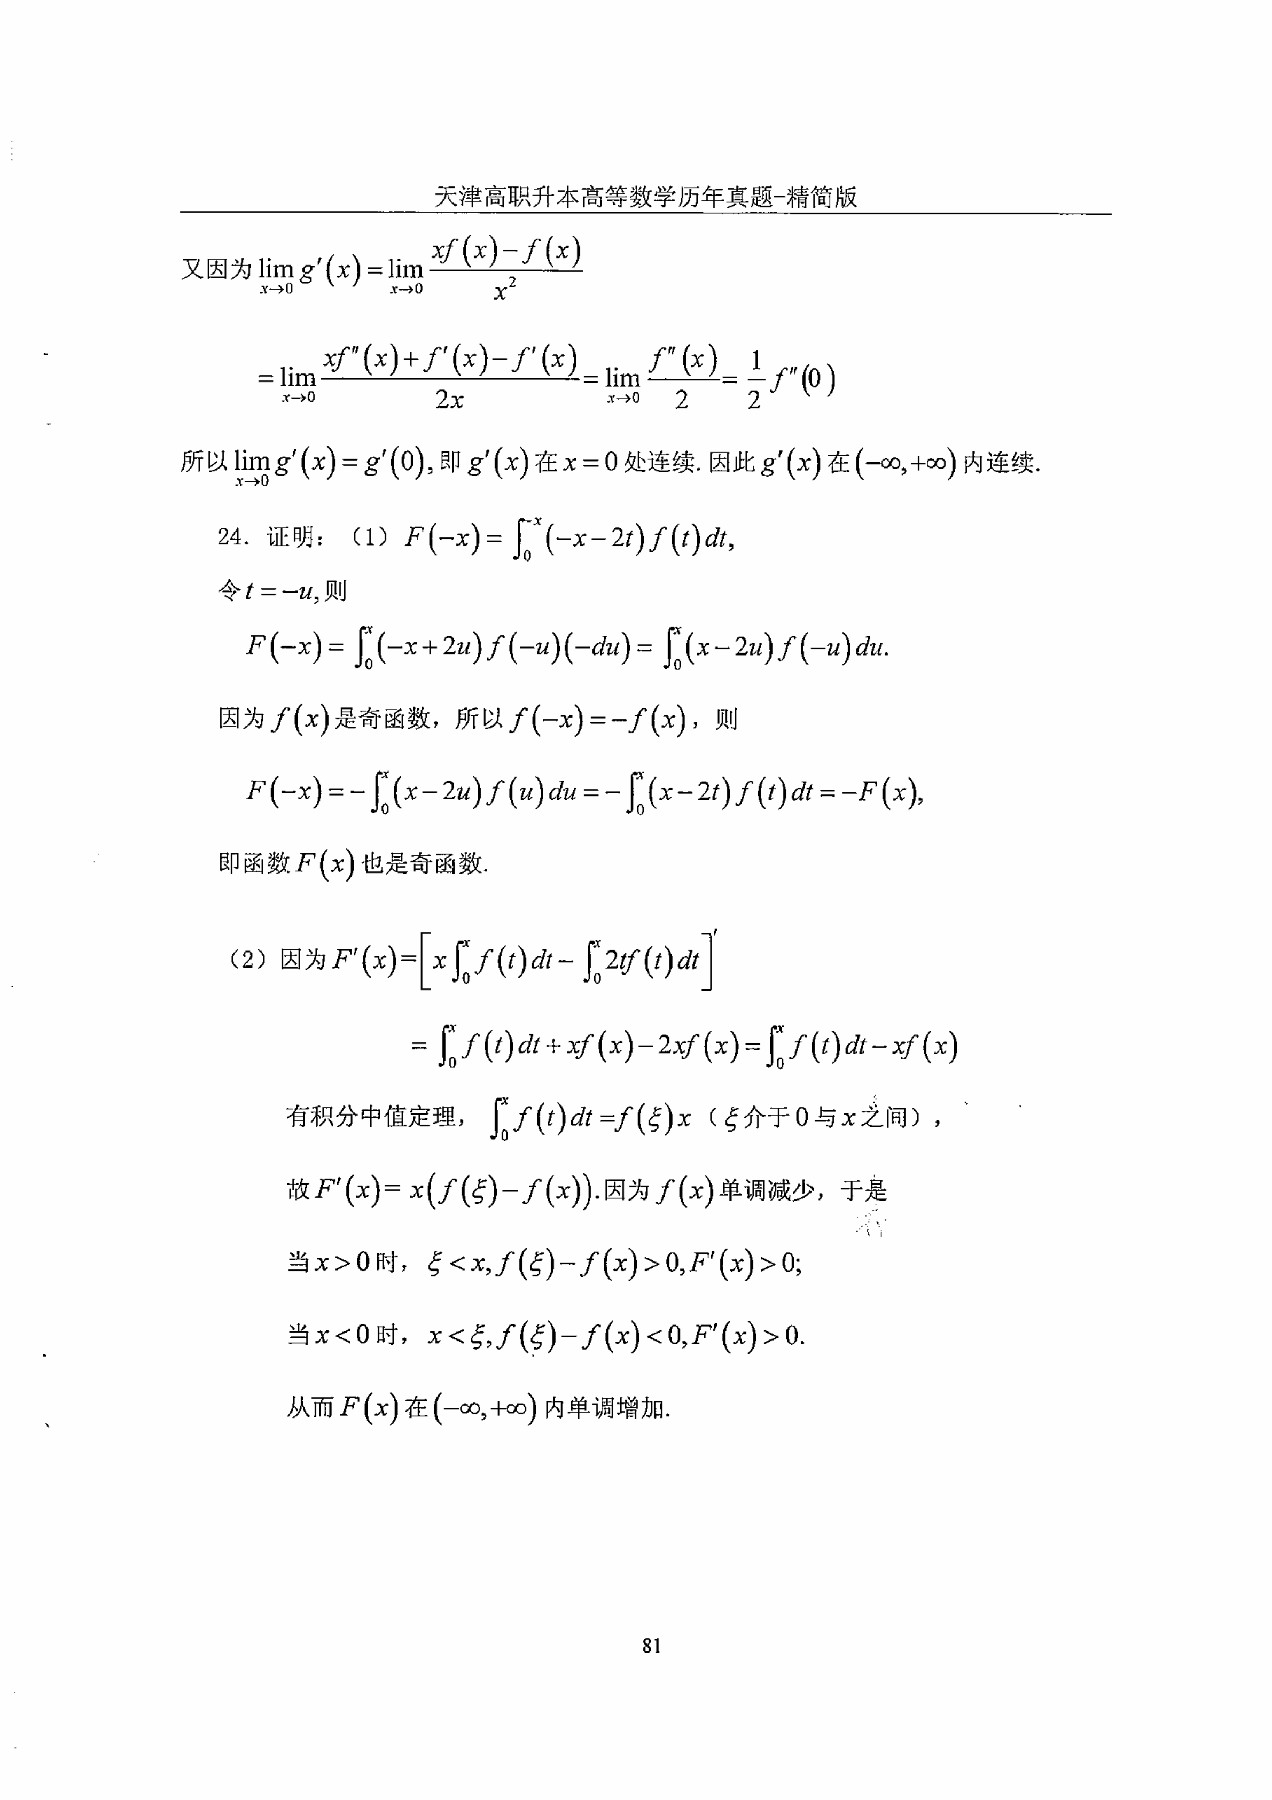 天津高职升本高等数学历年真题-精简版
又因为 $\lim_{x \to 0} g'(x) = \lim_{x \to 0} \frac{xf(x)-f(x)}{x^2}$
$= \lim_{x \to 0} \frac{xf''(x)+f'(x)-f'(x)}{2x} = \lim_{x \to 0} \frac{f''(x)}{2} = \frac{1}{2} f''(0)$
所以 $\lim_{x \to 0} g'(x) = g'(0)$, 即 $g'(x)$ 在 $x=0$ 处连续. 因此 $g'(x)$ 在 $(-\infty,+\infty)$ 内连续.
24. 证明：（1） $F(-x) = \int_0^{-x} (-x-2t) f(t) dt$,
令 $t=-u$, 则
$F(-x) = \int_0^x (-x+2u) f(-u)(-du) = \int_0^x (x-2u) f(-u) du.$
因为 $f(x)$ 是奇函数，所以 $f(-x)=-f(x)$，则
$F(-x) = -\int_0^x (x-2u) f(u) du = -\int_0^x (x-2t) f(t) dt = -F(x),$
即函数 $F(x)$ 也是奇函数.
（2）因为 $F'(x) = \left[ x\int_0^x f(t) dt - \int_0^x 2tf(t) dt \right]'$
$= \int_0^x f(t) dt + xf(x) - 2xf(x) = \int_0^x f(t) dt - xf(x)$
有积分中值定理， $\int_0^x f(t) dt = f(\xi)x$ （$\xi$ 介于 0 与 $x$ 之间），
故 $F'(x) = x(f(\xi)-f(x))$.因为 $f(x)$ 单调减少，于是
当 $x>0$ 时， $\xi<x, f(\xi)-f(x)>0, F'(x)>0;$
当 $x<0$ 时， $x<\xi, f(\xi)-f(x)<0, F'(x)>0.$
从而 $F(x)$ 在 $(-\infty,+\infty)$ 内单调增加.
81